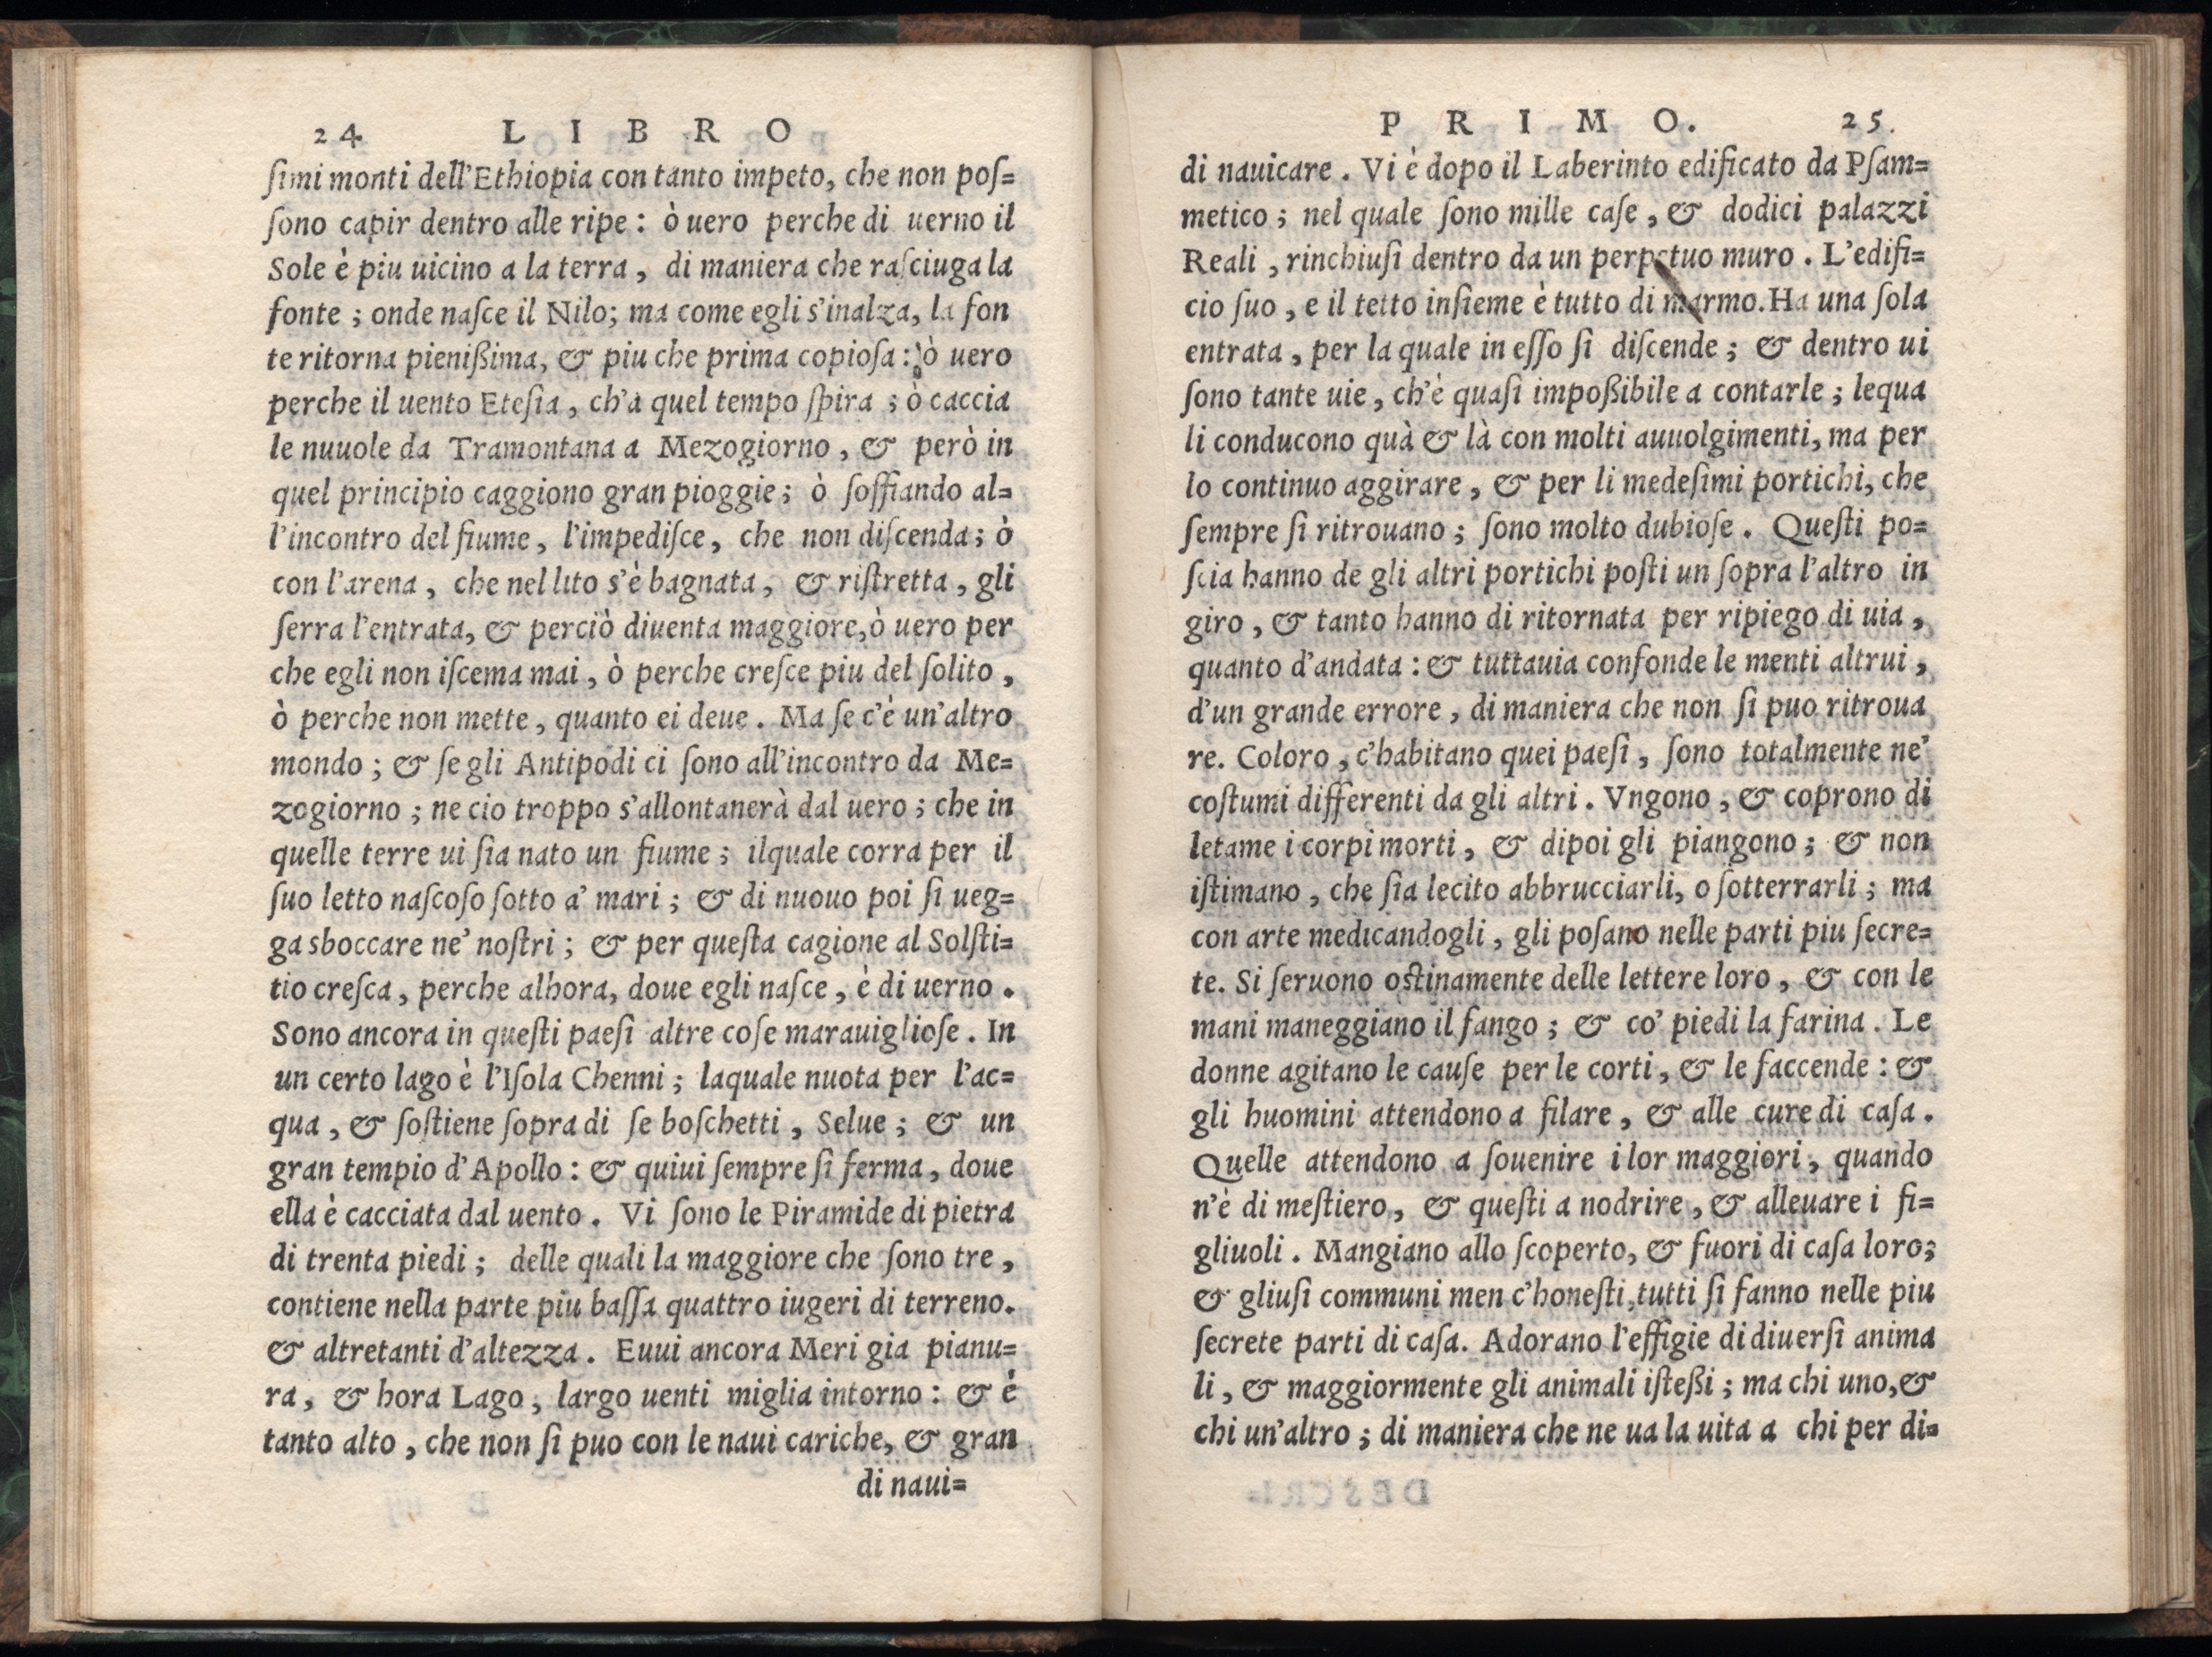 24 LIBRO
ſimi monti dell'Ethiopia con tanto impeto, che non poſ=
ſono capir dentro alle ripe: ò uero perche di uerno il
Sole è piu uicino a la terra, di maniera che raſciuga la
fonte; onde naſce il Nilo; ma come egli s'inalza, la fon
te ritorna pienißima, & piu che prima copioſa: ò uero
perche il uento Eteſia, ch'a quel tempo ſpira; ò caccia
le nuuole da Tramontana a Mezogiorno, & però in
quel principio caggiono gran pioggie; ò ſoffiando al=
l'incontro del fiume, l'impediſce, che non diſcenda; ò
con l'arena, che nel lito s'è bagnata, & riſtretta, gli
ſerra l'entrata, & perciò diuenta maggiore, ò uero per
che egli non iſcema mai, ò perche creſce piu del ſolito,
ò perche non mette, quanto ei deue. Ma ſe c'è un'altro
mondo; & ſe gli Antipodi ci ſono all'incontro da Me=
zogiorno; ne cio troppo s'allontanerà dal uero; che in
quelle terre ui ſia nato un fiume; ilquale corra per il
ſuo letto naſcoſo ſotto a' mari; & di nuouo poi ſi ueg=
ga sboccare ne' noſtri; & per queſta cagione al Solſti=
tio creſca, perche alhora, doue egli naſce, è di uerno.
Sono ancora in queſti paeſi altre coſe marauiglioſe. In
un certo lago è l'Iſola Chenni; laquale nuota per l'ac=
qua, & ſoſtiene ſopra di ſe boſchetti, Selue; & un
gran tempio d'Apollo: & quiui ſempre ſi ferma, doue
ella è cacciata dal uento. Vi ſono le Piramide di pietra
di trenta piedi; delle quali la maggiore che ſono tre,
contiene nella parte piu baſſa quattro iugeri di terreno.
& altretanti d'altezza. Euui ancora Meri gia pianu=
ra, & hora Lago, largo uenti miglia intorno: & è
tanto alto, che non ſi puo con le naui cariche, & gran
di naui=
PRIMO. 25.
di nauicare. Vi è dopo il Laberinto edificato da Pſam=
metico; nel quale ſono mille caſe, & dodici palazzi
Reali, rinchiuſi dentro da un perpetuo muro. L'edifi=
cio ſuo, e il tetto inſieme è tutto di marmo. Ha una ſola
entrata, per la quale in eſſo ſi diſcende; & dentro ui
ſono tante uie, ch'è quaſi impoßibile a contarle; lequa
li conducono quà & là con molti auuolgimenti, ma per
lo continuo aggirare, & per li medeſimi portichi, che
ſempre ſi ritrouano; ſono molto dubioſe. Queſti po=
ſcia hanno de gli altri portichi poſti un ſopra l'altro in
giro, & tanto hanno di ritornata per ripiego di uia,
quanto d'andata: & tuttauia confonde le menti altrui,
d'un grande errore, di maniera che non ſi puo ritroua
re. Coloro, c'habitano quei paeſi, ſono totalmente ne'
coſtumi differenti da gli altri. Vngono, & coprono di
letame i corpi morti, & dipoi gli piangono; & non
iſtimano, che ſia lecito abbrucciarli, o ſotterrarli; ma
con arte medicandogli, gli poſano nelle parti piu ſecre=
te. Si ſeruono oſtinamente delle lettere loro, & con le
mani maneggiano il fango; & co' piedi la farina. Le
donne agitano le cauſe per le corti, & le faccende: &
gli huomini attendono a filare, & alle cure di caſa.
Quelle attendono a ſouenire i lor maggiori, quando
n'è di meſtiero, & queſti a nodrire, & alleuare i fi=
gliuoli. Mangiano allo ſcoperto, & fuori di caſa loro;
& gliuſi communi men c'honeſti, tutti ſi fanno nelle piu
ſecrete parti di caſa. Adorano l'effigie di diuerſi anima
li, & maggiormente gli animali iſteßi; ma chi uno, &
chi un'altro; di maniera che ne ua la uita a chi per di=